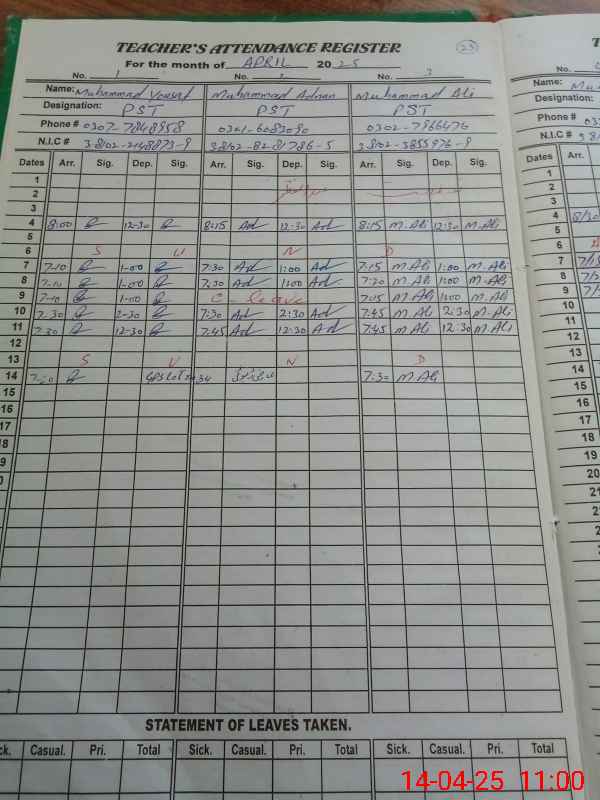 TEACHER'S ATTENDANCE REGISTER
23
For the month of APRIL 2025
No. 1 No. 2 No. 3
Name: Muhammad Yousaf Muhammad Adnan Muhammad Ali
Designation: PST PST PST
Phone # 0307-7848958 0341-6083090 0302-7966476
N.I.C # 38102-2148873-9 38102-8281786-5 38102-3855976-9
Dates Arr. Sig. Dep. Sig. Arr. Sig. Dep. Sig. Arr. Sig. Dep. Sig.
1
2
3
4 8:00 12-30 8:15 Ad 12:30 Ad 8:15 M.Ali 12:30 M.Ali
5
6 S U N D
7 7-10 1-00 7:30 Ad 1:00 Ad 7:15 M Ali 1:00 M.Ali
8 7-10 1-00 7.30 Ad 1:00 Ad 7:20 M Ali 1:00 M.Ali
9 7-10 1-00 C-leave 7:15 M Ali 1:00 M.Ali
10 7-30 2-30 7:30 Ad 2:30 Ad 7:45 M Ali 2:30 M.Ali
11 7-30 12-30 7.45 Ad 12:30 Ad 7:45 M Ali 12:30 M.Ali
12
13 S U N D
14 7:30 M Ali
15
16
17
18
STATEMENT OF LEAVES TAKEN.
Sick. Casual. Pri. Total Sick. Casual. Pri. Total Sick. Casual. Pri. Total
Name:
Designation:
Phone #
N.I.C #
Dates Arr.
1
2
3
4
5
6
7
8
9
10
11
12
13
14
15
16
17
18
19
20
21
14-04-25 11:00